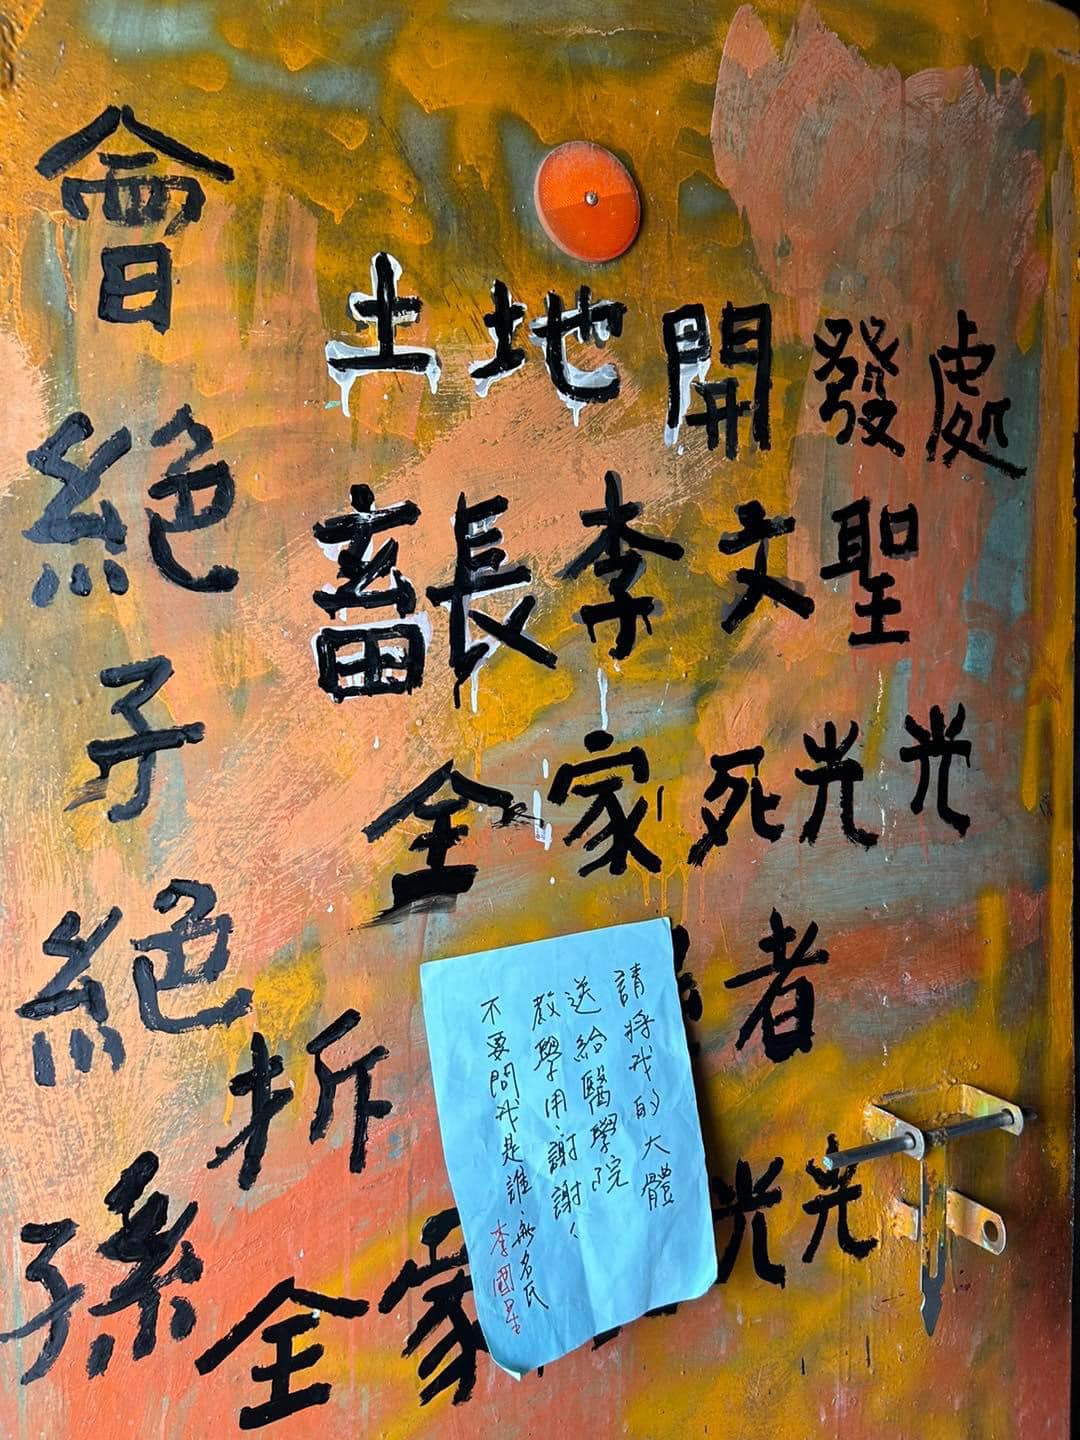 土地開發處
畜長李文聖
全家死光光
拆 者
全家 光光
會絕子絕孫
請將我的大體
送給醫學院
教學用、謝謝!
不要問我是誰、無名氏
李國星